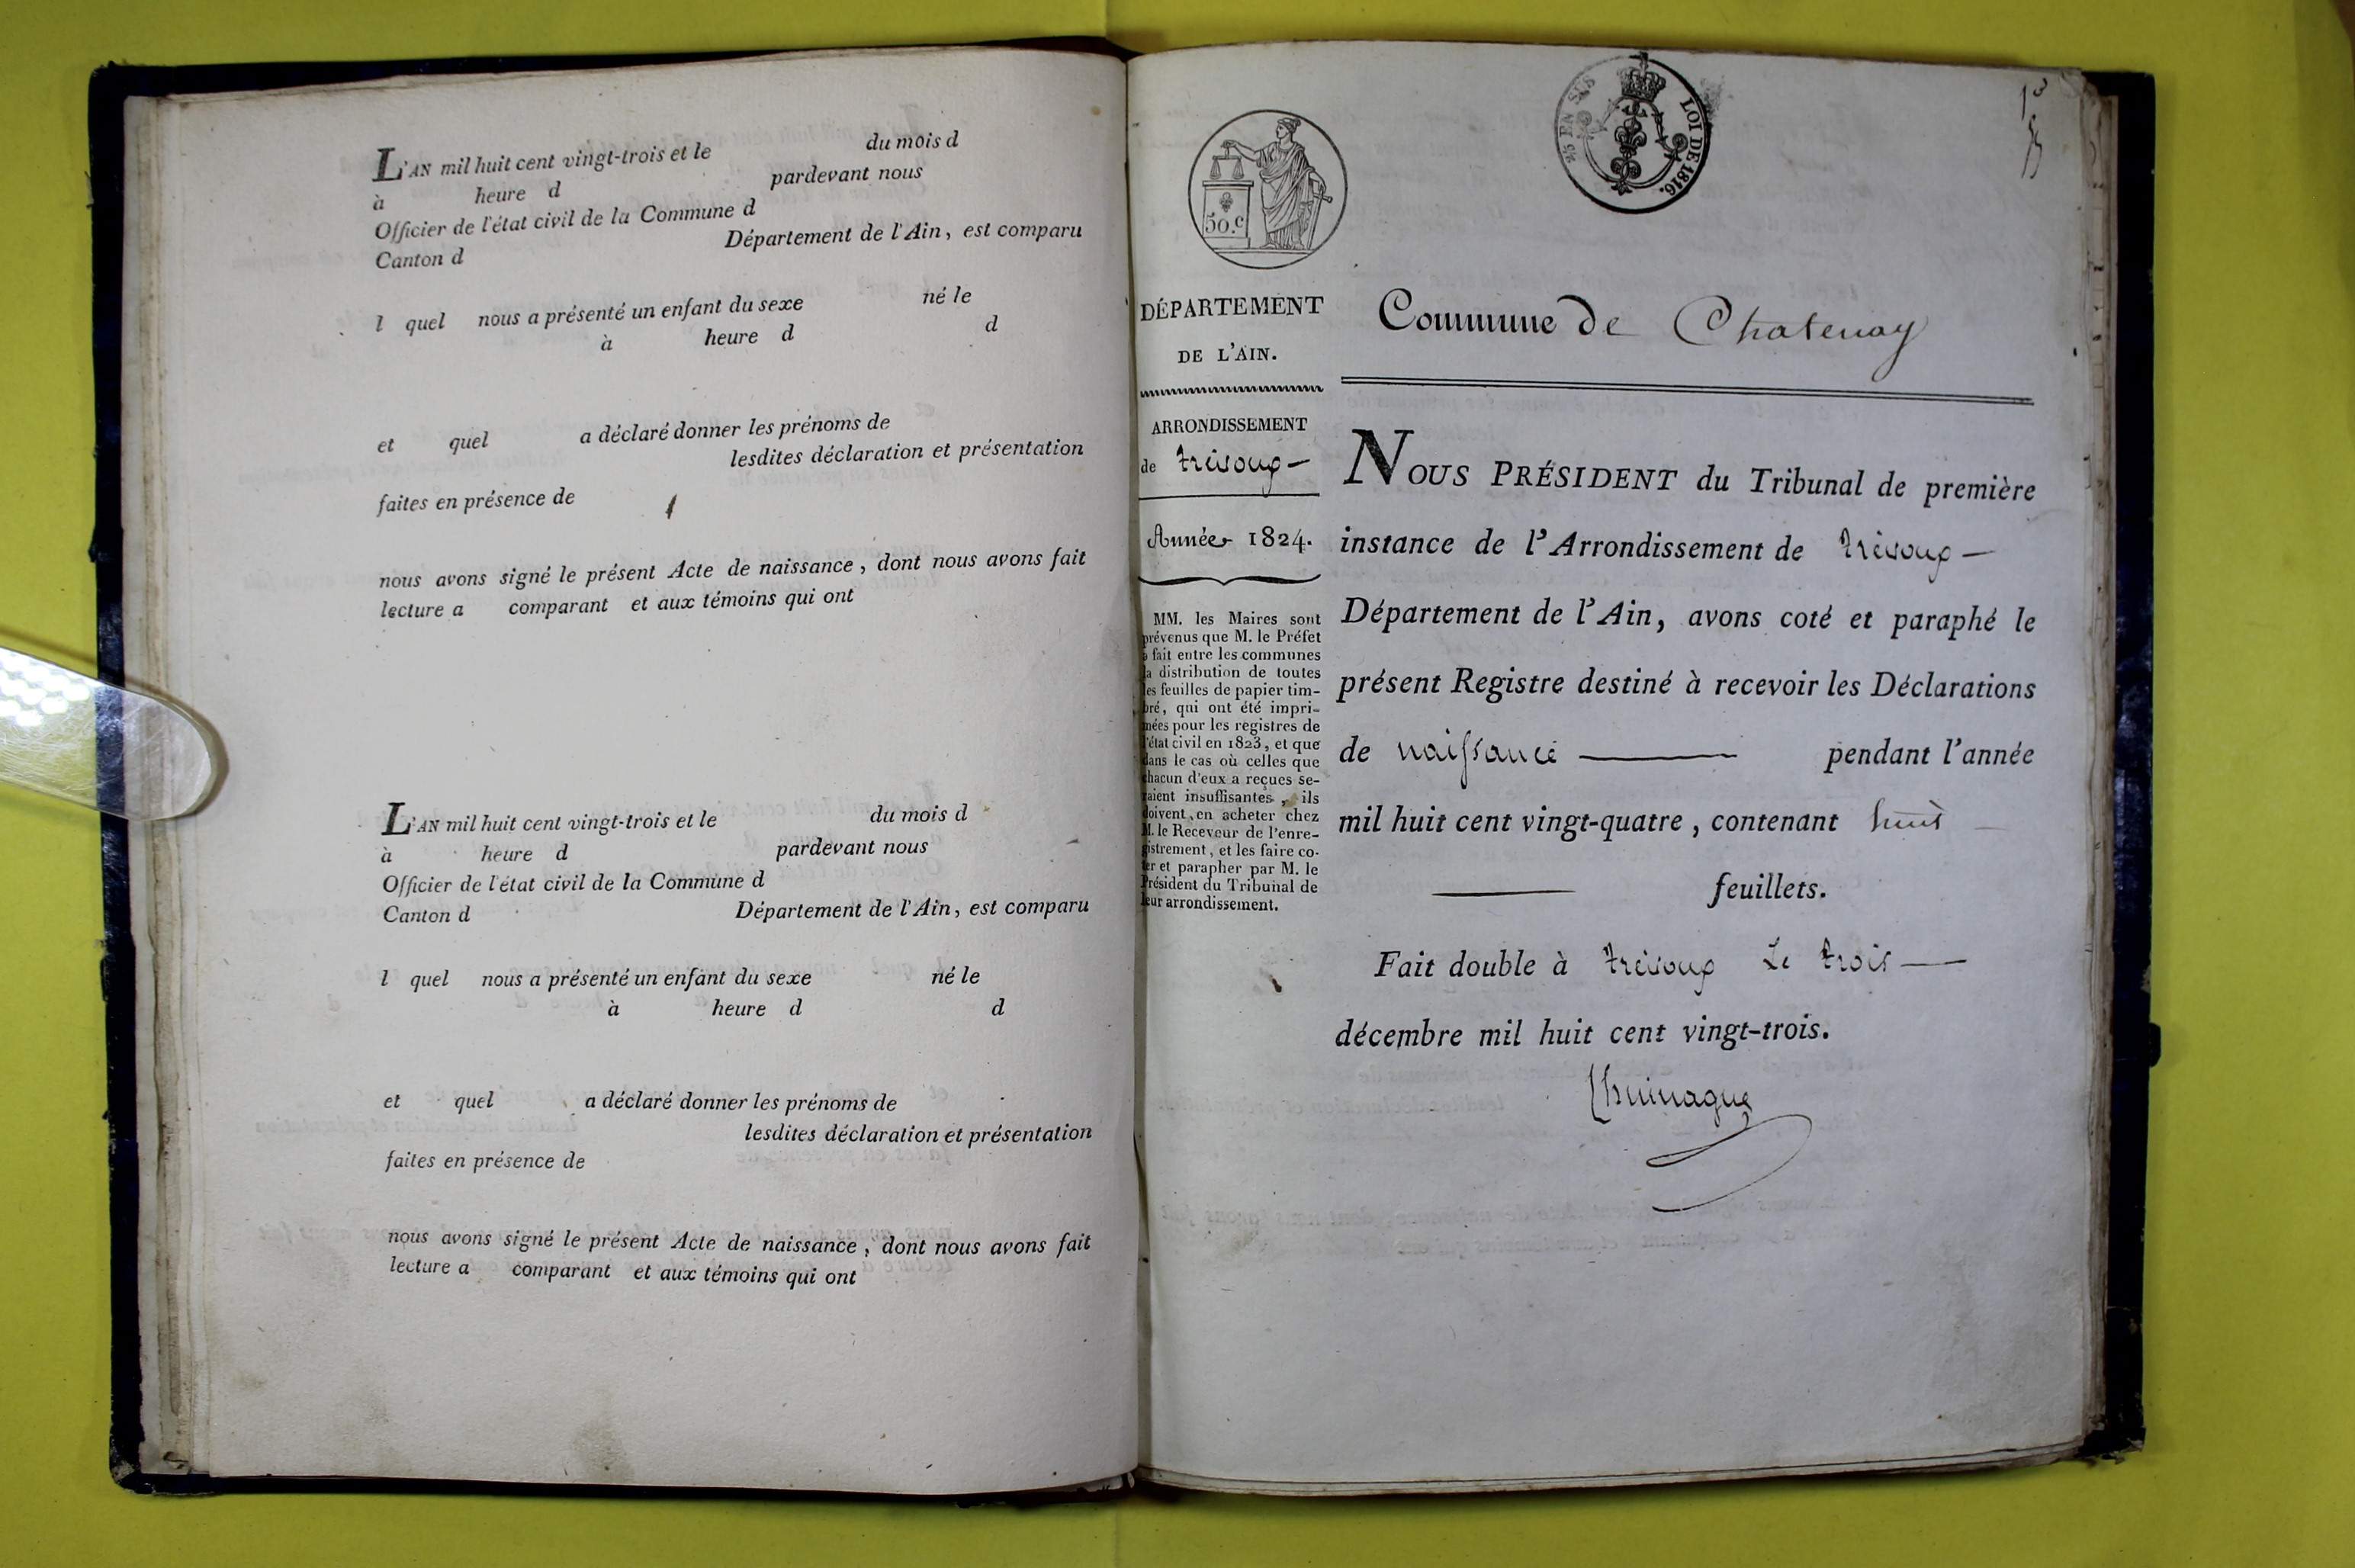 L'AN mil huit cent vingt-trois et le du mois d
à heure d pardevant nous
Officier de l'état civil de la Commune d
Canton d Département de l'Ain, est comparu
l quel nous a présenté un enfant du sexe né le
à heure d d
et quel a déclaré donner les prénoms de
lesdites déclaration et présentation
faites en présence de
nous avons signé le présent Acte de naissance, dont nous avons fait
lecture a comparant et aux témoins qui ont
L'AN mil huit cent vingt-trois et le du mois d
à heure d pardevant nous
Officier de l'état civil de la Commune d
Canton d Département de l'Ain, est comparu
l quel nous a présenté un enfant du sexe né le
à heure d d
et quel a déclaré donner les prénoms de
lesdites déclaration et présentation
faites en présence de
nous avons signé le présent Acte de naissance, dont nous avons fait
lecture a comparant et aux témoins qui ont
50.c
EN SUS
LOI DE 1816.
DÉPARTEMENT
DE L'AIN.
ARRONDISSEMENT
de trévoux
Année 1824.
MM. les Maires sont
prévenus que M. le Préfet
a fait entre les communes
la distribution de toutes
les feuilles de papier tim-
bré, qui ont été impri-
mées pour les registres de
l'état civil en 1823, et que
dans le cas où celles que
chacun d'eux a reçues se-
raient insuffisantes, ils
doivent en acheter chez
M. le Receveur de l'enre-
gistrement, et les faire co-
ter et parapher par M. le
Président du Tribunal de
leur arrondissement.
Commune de Chatenay
NOUS PRÉSIDENT du Tribunal de première
instance de l'Arrondissement de trévoux
Département de l'Ain, avons coté et paraphé le
présent Registre destiné à recevoir les Déclarations
de naissance pendant l'année
mil huit cent vingt-quatre, contenant huit
feuillets.
Fait double à trévoux Le trois
décembre mil huit cent vingt-trois.